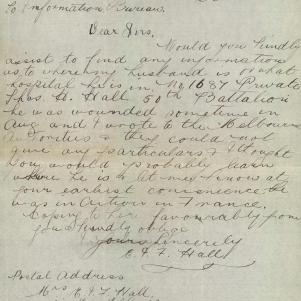 To Information Bureau.
Dear Sirs.
Would you kindly
assist to find any information
as to where my husband is or what
hospital he is in No 1687 Private
Thos. H. Hall 50th Battalion
he was wounded sometime in
Aug and I wrote to the Melbourne
they could not
give any particulars & thought
you would probably learn
where he is & let me know at
your earliest convenience. he
was in Action in France.
Hoping to hear favourably from
you & kindly oblige
Yours Sincerely
E. J. F. Hall
Postal Address
Mrs E. J. F. Hall